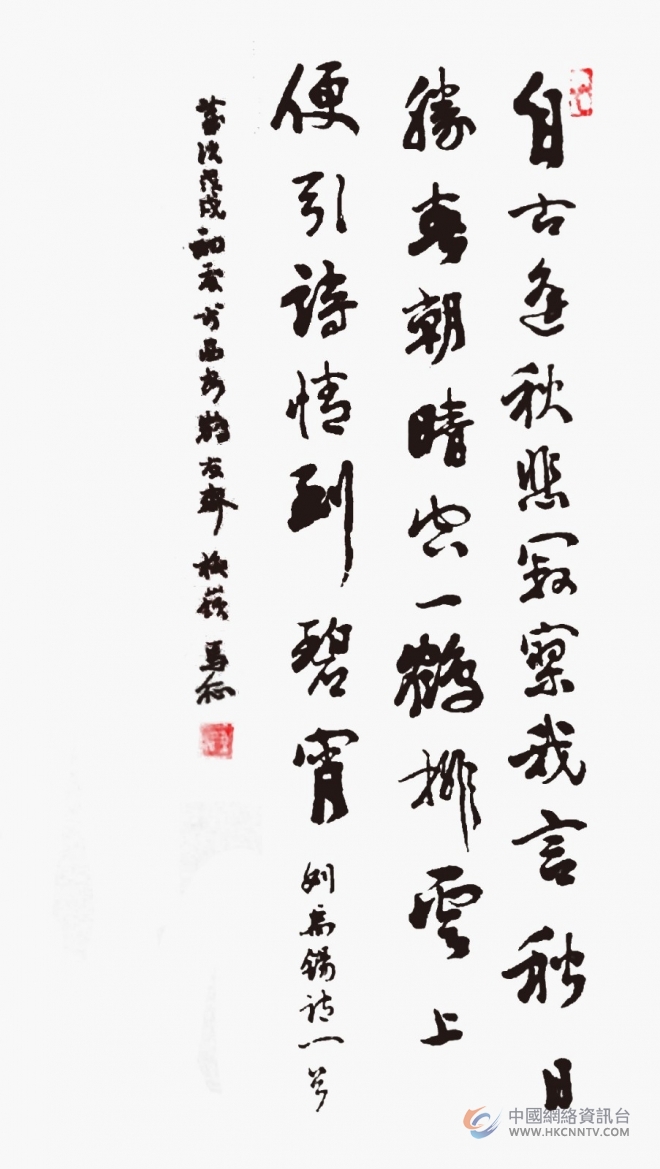 自古逢秋悲寂寥我言秋日
勝春朝晴空一鶴排雲上
便引詩情到碧霄 劉禹錫詩一首
歲次戊戌初夏於西安 友齋 馬
中國網絡資訊台
WWW.HKCNNTV.COM